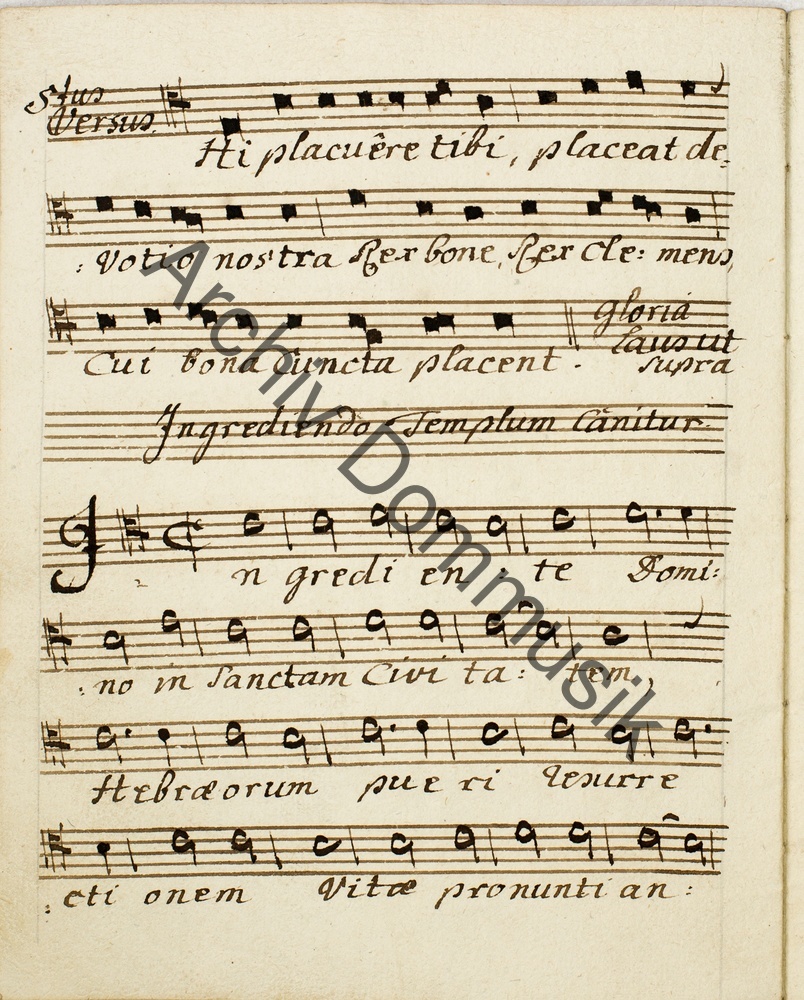 5tus
Versus.
Hi placuêre tibi, placeat de:
: votio nostra Rex bone, Rex Cle: mens,
Cui bona Cuncta placent.
Gloria
Laus ut
supra
Ingrediendo Templum Cānitur
In gredi en : te Domi:
: no in Sanctam Civi ta: tem,
Hebræorum pue ri Resurre
: cti onem Vitæ pronunti an :
Archiv Dommusik